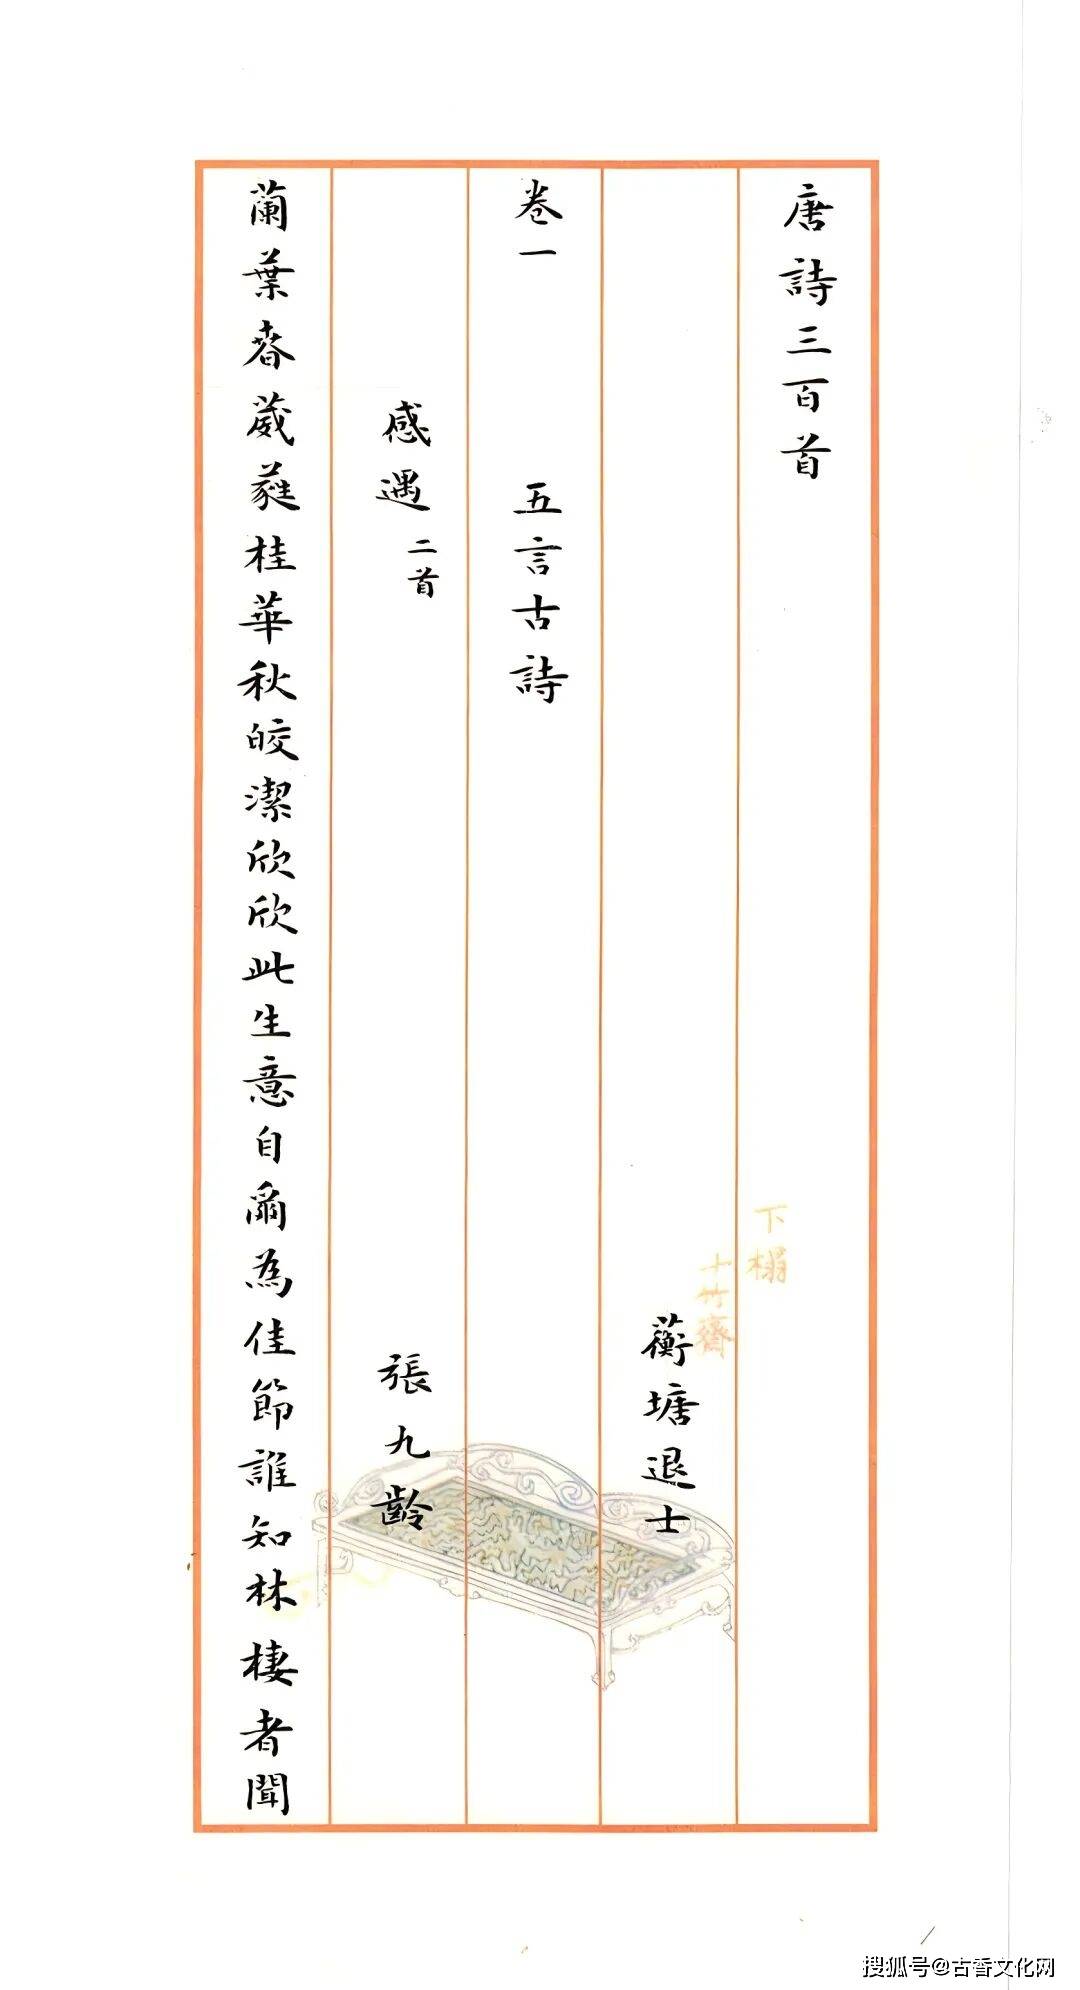 唐詩三百首
蘅塘退士
卷一 五言古詩
感遇 二首 張九齡
蘭葉春葳蕤桂華秋皎潔欣欣此生意自爾為佳節誰知林棲者聞
下榻
十竹齋
搜狐号@古香文化网